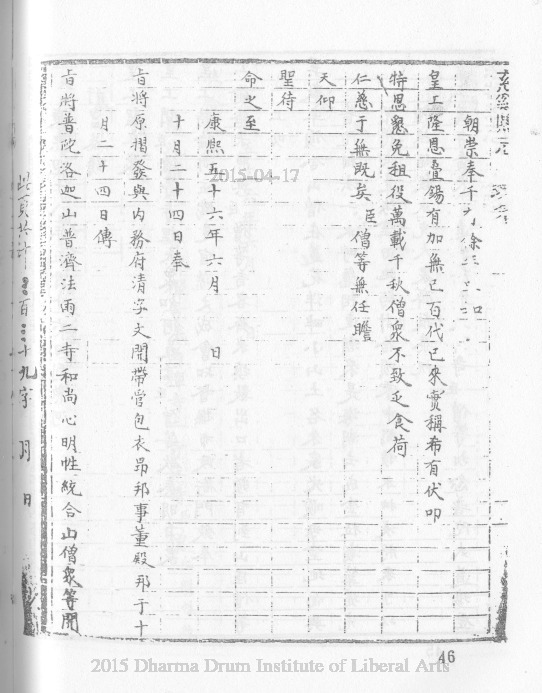 朝崇奉千
皇上隆恩疊錫有加無已百代已來實稱希有伏叩
特恩蠲免租役萬載千秋僧衆不致乏食荷
仁慈于無既矣臣僧等無任瞻
天仰
聖待
命之至
康熙五十六年六月 日
十月二十四日奉
旨將原摺發與內務府清字文開帶管包衣昂邦事董殿那于十
月二十四日傳
旨將普陀洛迦山普濟法雨二寺和尚心明性統合山僧衆等開
此頁共計 百 十九字 月 日
2015-04-17
46
2015 Dharma Drum Institute of Liberal Arts